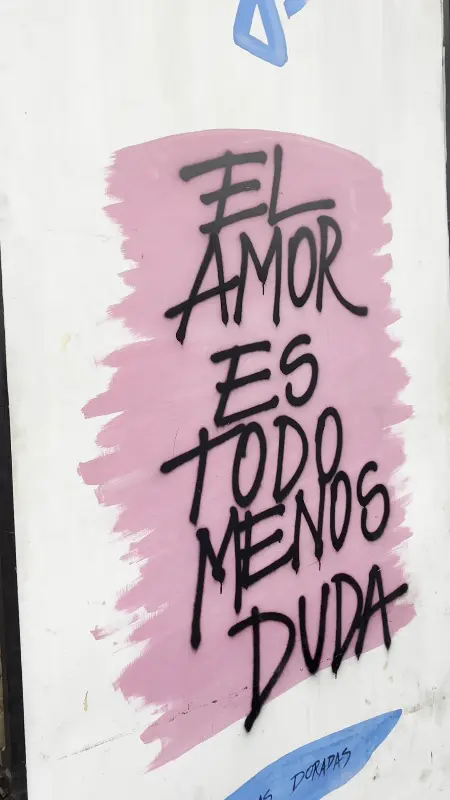 EL
AMOR
ES
TODO
MENOS
DUDA
DORADAS